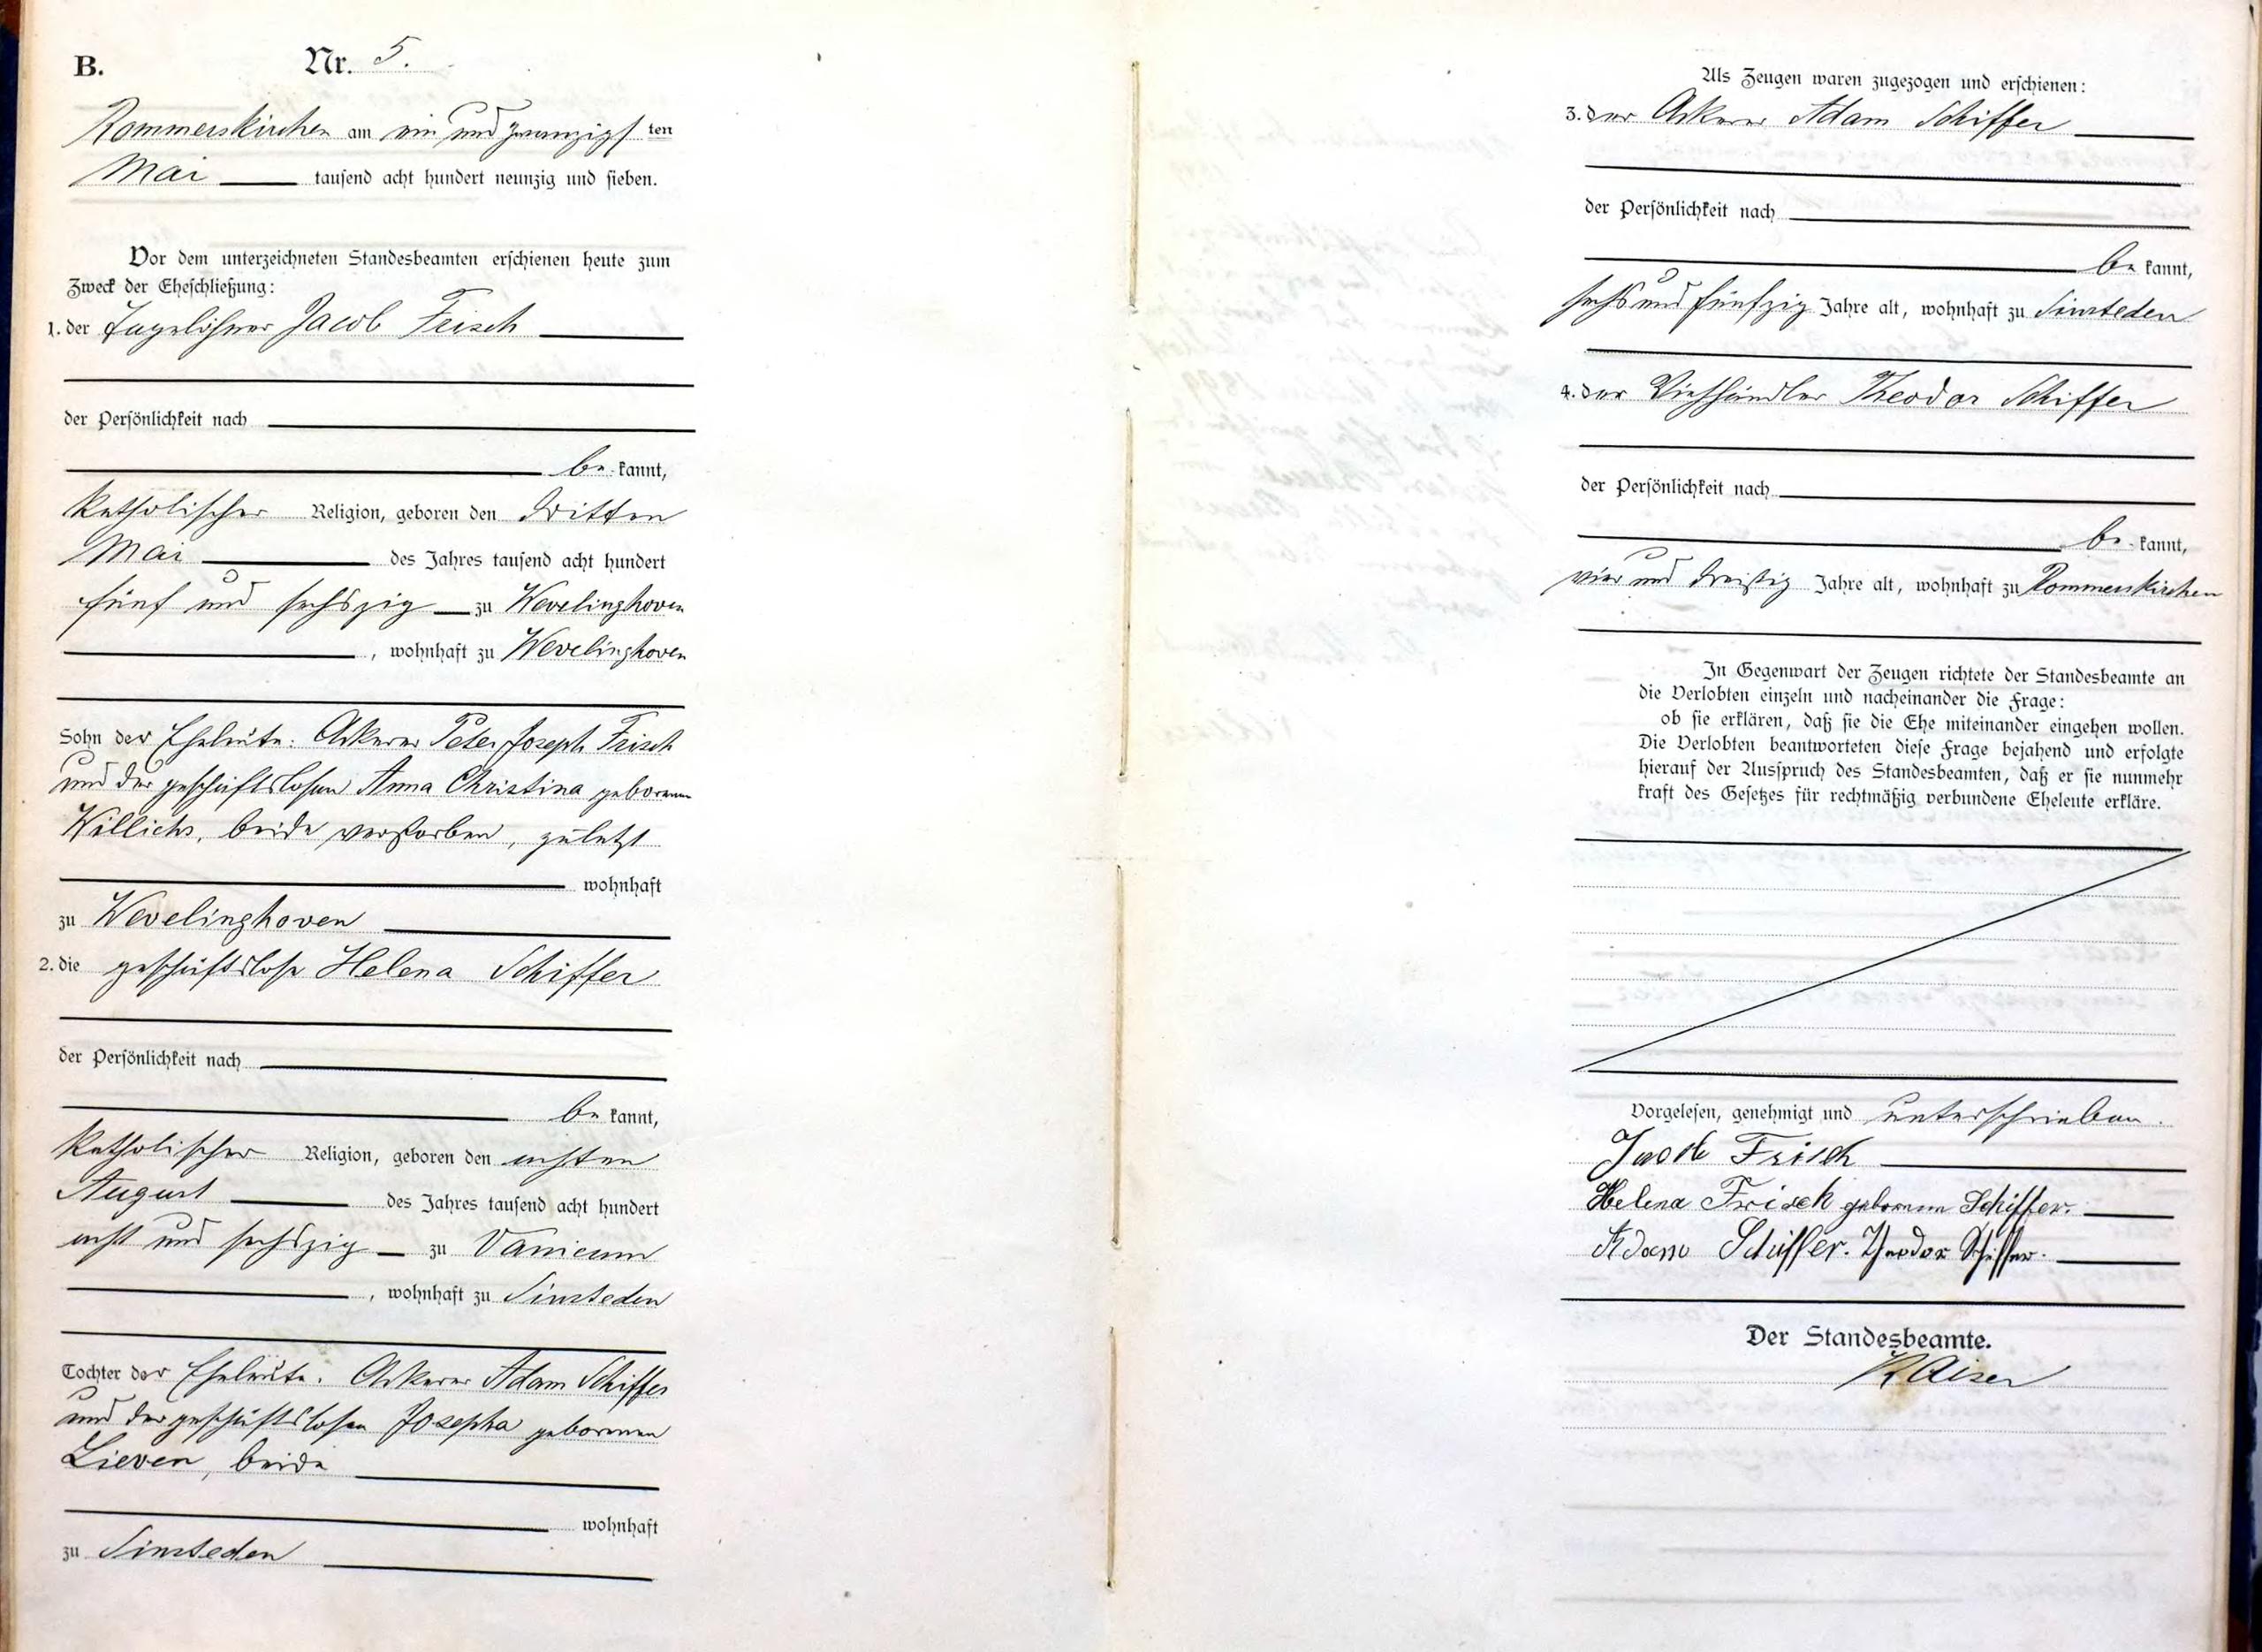 B. Nr. 5.
Rommerskirchen am ein und zwanzigsten
Mai tausend acht hundert neunzig und sieben.
Vor dem unterzeichneten Standesbeamten erschienen heute zum
Zweck der Eheschließung:
1. der Tagelöhner Jacob Frisch
der Persönlichkeit nach
be kannt,
katholischer Religion, geboren den dritten
Mai des Jahres tausend acht hundert
fünf und sechszig zu Wevelinghoven
, wohnhaft zu Wevelinghoven
Sohn der Eheleute: Ackerer Peter Joseph Frisch
und der geschäftslosen Anna Christina geborenen
Willichs, beide verstorben, zuletzt
wohnhaft
zu Wevelinghoven
2. die geschäftslose Helena Schiffer
der Persönlichkeit nach
be kannt,
katholischer Religion, geboren den achten
August des Jahres tausend acht hundert
acht und sechszig zu Vanicum
, wohnhaft zu Sinsteden
Tochter der Eheleute: Ackerer Adam Schiffer
und der geschäftslosen Josepha geborenen
Lieven, beide
wohnhaft
zu Sinsteden
Als Zeugen waren zugezogen und erschienen:
3. der Ackerer Adam Schiffer
der Persönlichkeit nach
be kannt,
sechs und fünfzig Jahre alt, wohnhaft zu Sinsteden
4. der Viehhändler Theodor Schiffer
der Persönlichkeit nach
be kannt,
vier und dreißig Jahre alt, wohnhaft zu Rommerskirchen
In Gegenwart der Zeugen richtete der Standesbeamte an
die Verlobten einzeln und nacheinander die Frage:
ob sie erklären, daß sie die Ehe miteinander eingehen wollen.
Die Verlobten beantworteten diese Frage bejahend und erfolgte
hierauf der Ausspruch des Standesbeamten, daß er sie nunmehr
kraft des Gesetzes für rechtmäßig verbundene Eheleute erkläre.
Vorgelesen, genehmigt und unterschrieben.
Jacob Frisch
Helena Frisch geborene Schiffer.
Adam Schiffer. Theodor Schiffer.
Der Standesbeamte.
Kaiser